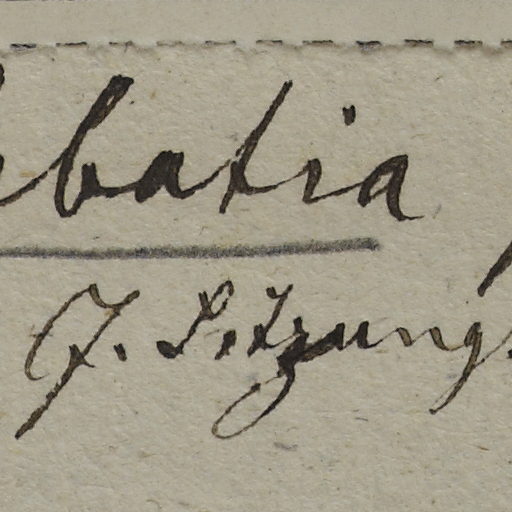 batia
J. Sitzung